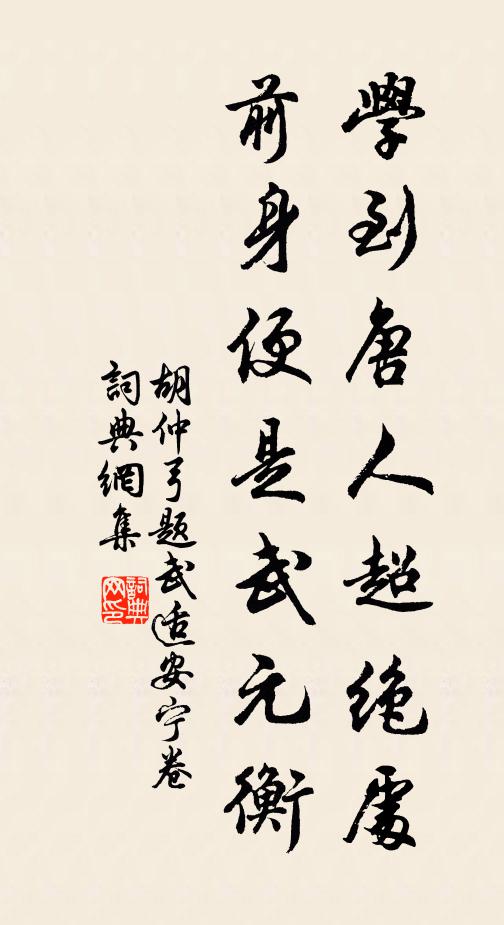 學到唐人超絕處
前身便是武元衡
胡仲弓題武适安宁卷
詞典網集
詞典網印